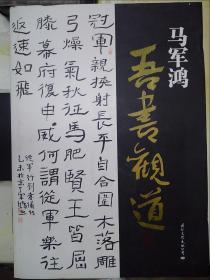 冠軍親挾射長平自合圍木落雕
弓燥氣秋征馬肥賢王皆屈
膝幕府復申威何謂從軍樂往
返速如飛
從軍行
马军鸿
吾書觀道